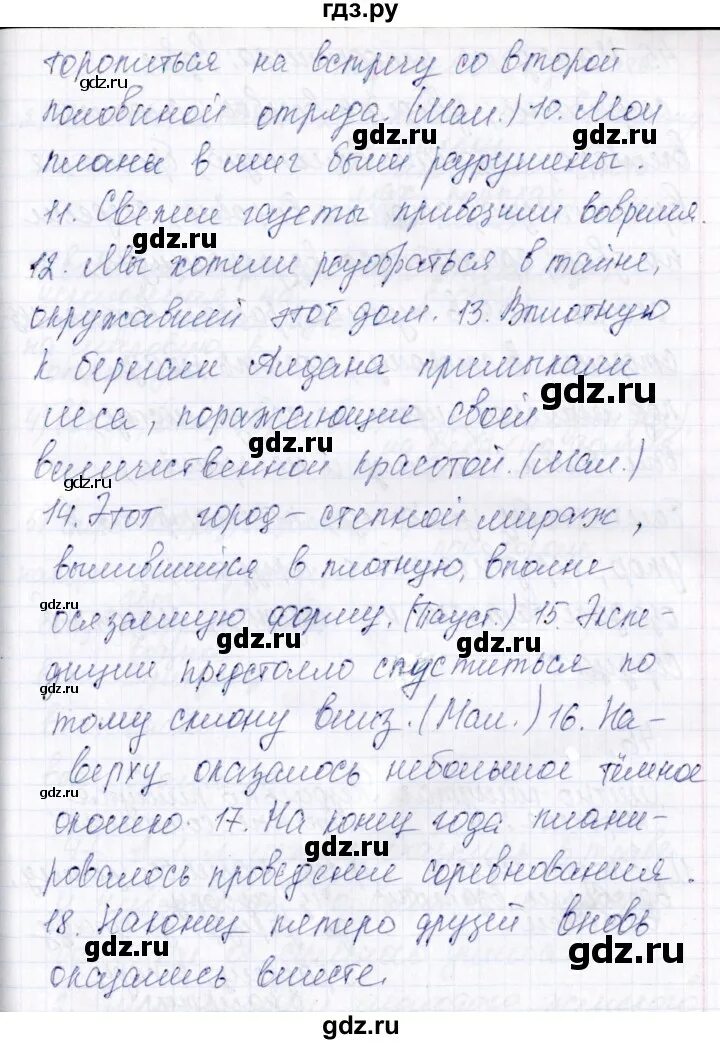 гдз.ру
торопиться на встречу со второй
gdz.ru
половиной отряда. (Мал.) 10. Мои
gdz.ru gdz.ru
планы вмиг были разрушены.
gdz.ru
11. Свежие газеты привозили вовремя.
gdz.ru
12. Мы хотели разобраться в тайне,
окружавшей этот дом. 13. Вплотную
к берегам Алдана примыкали
gdz.ru
леса, поражающие своей
gdz.ru
величественной красотой. (Мал.)
gdz.ru
14. Этот город – степной мираж,
вылившийся в плотную, вполне
gdz.ru
осязаемую форму. (Пауст.) 15. Экспе-
gdz.ru gdz.ru
диции предстояло спуститься по
gdz.ru
тому склону вниз. (Мал.) 16. На-
верху оказалось небольшое тёмное
gdz.ru
окошко. 17. На конец года плани-
gdz.ru
ровалось проведение соревнования.
18. Наконец пятеро друзей вновь
gdz.ru gdz.ru
оказались вместе.
gdz.ru